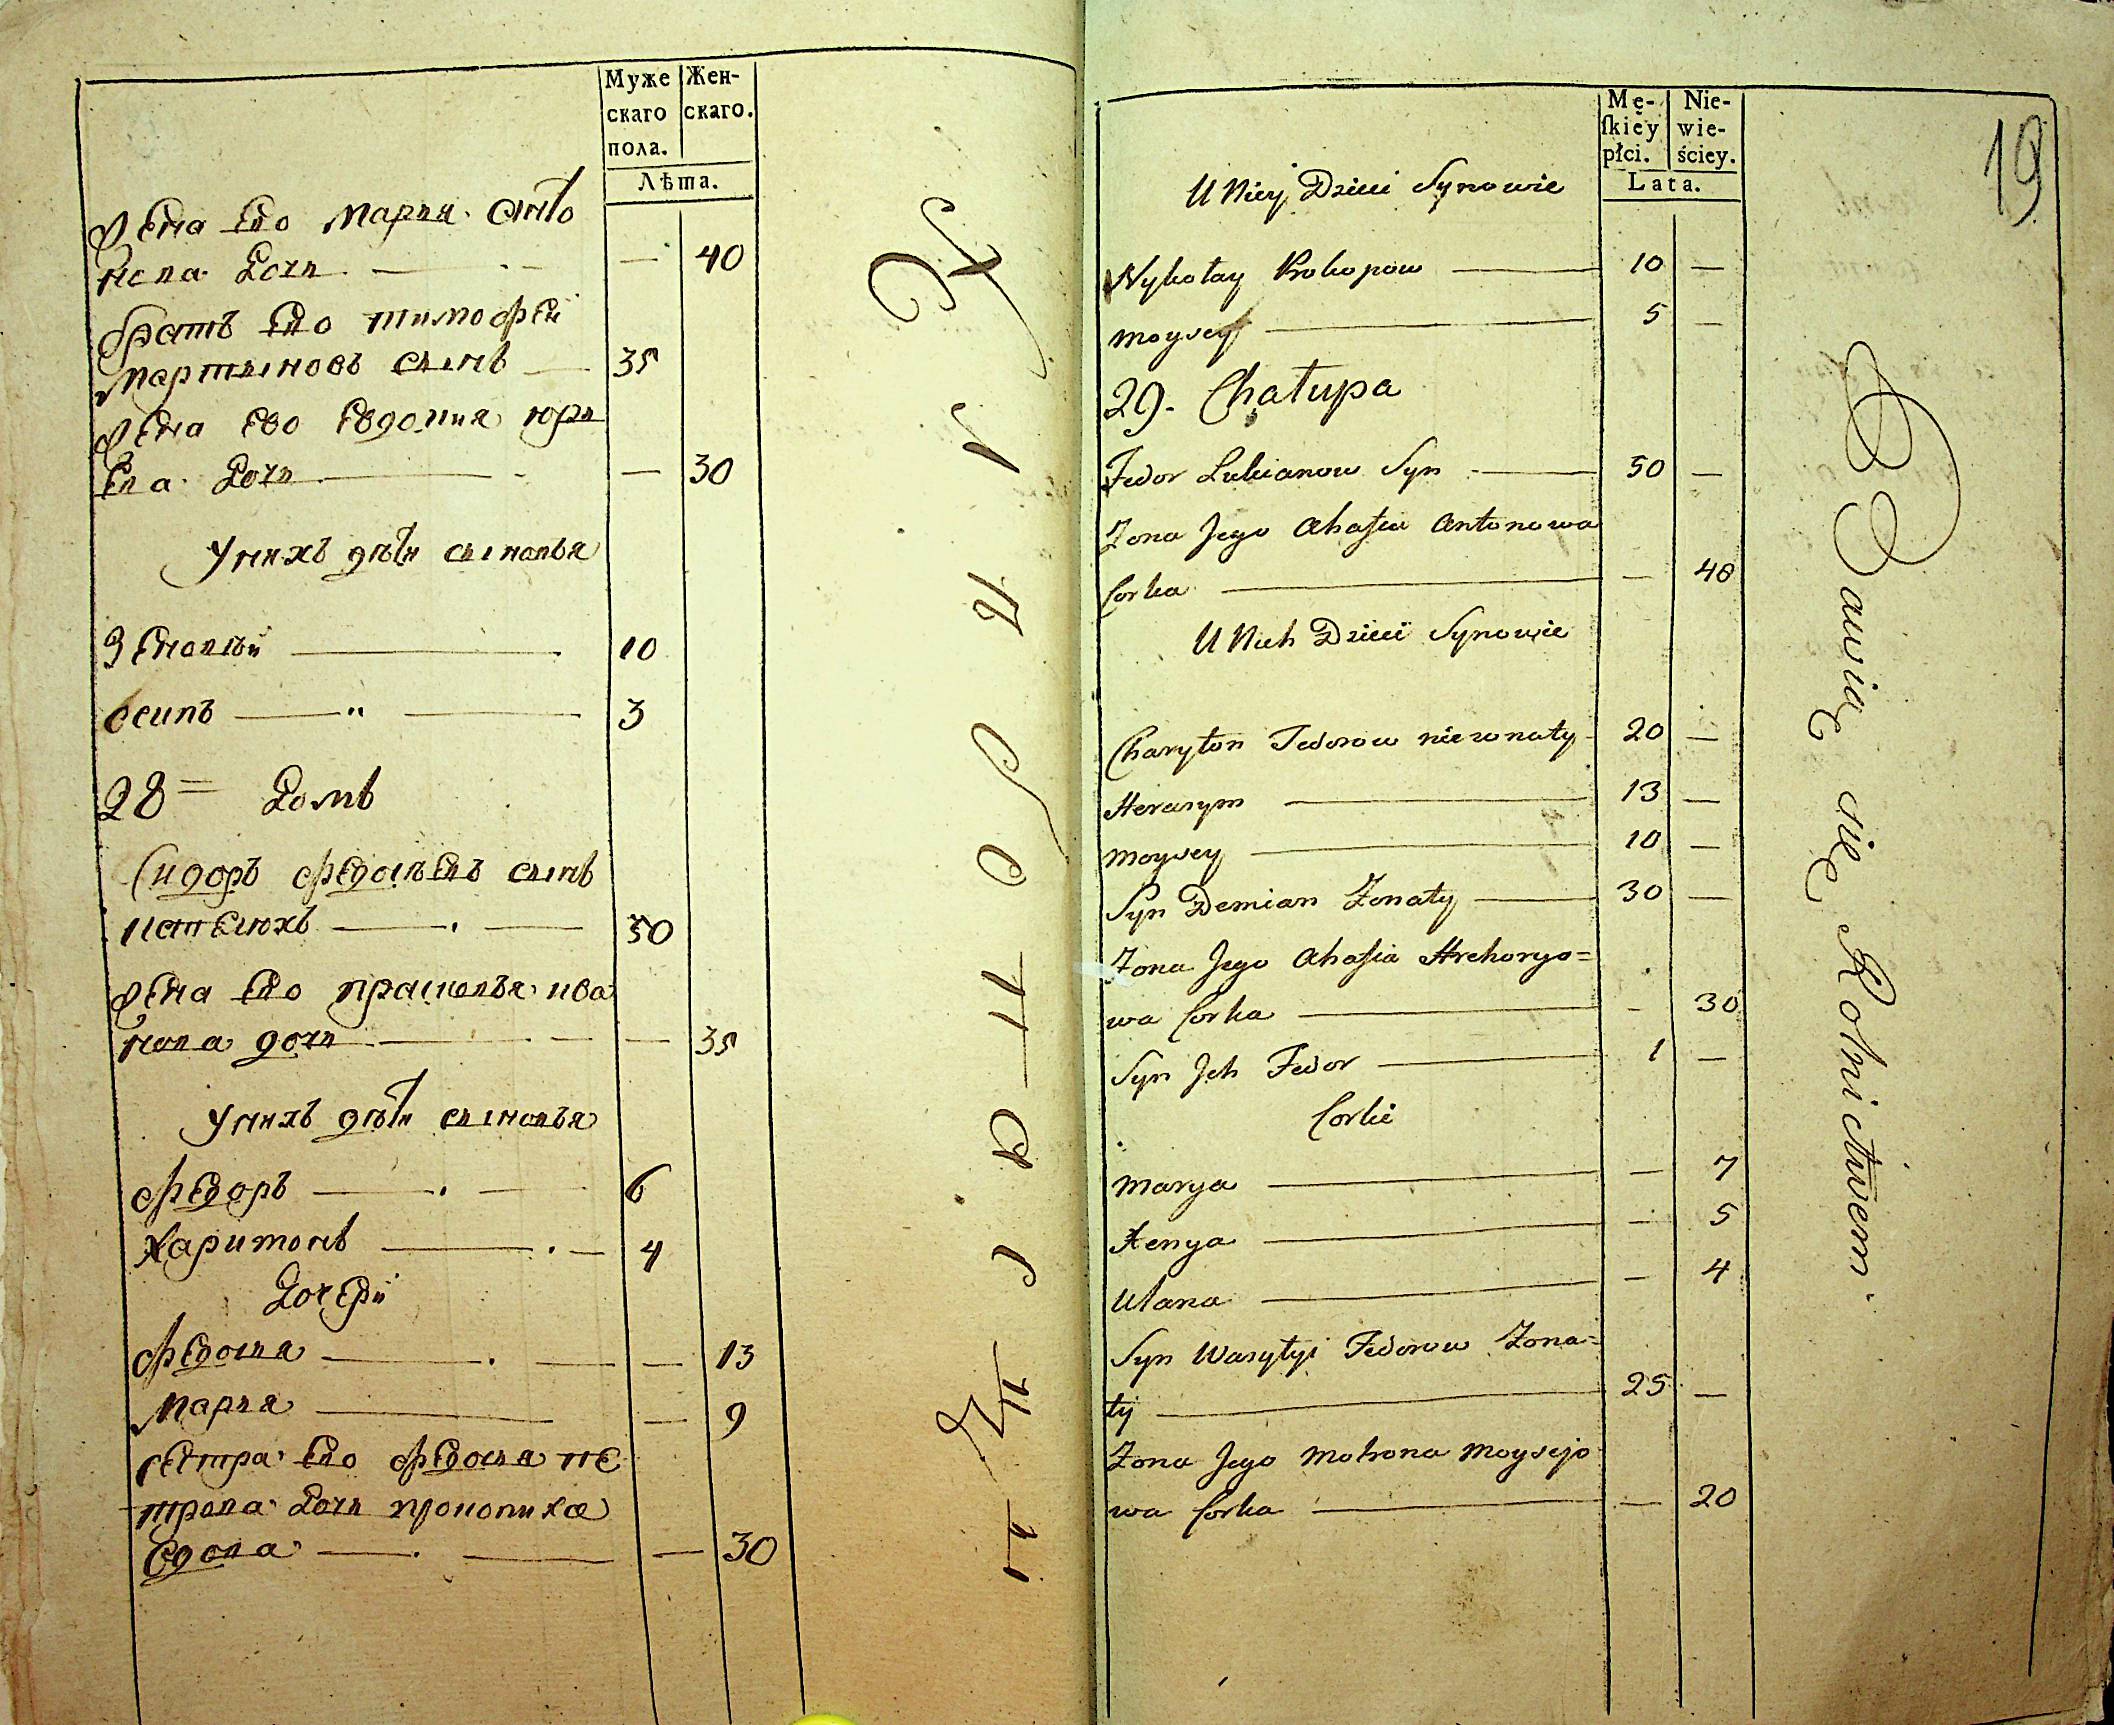 Муже
скаго
пола.
Жен-
скаго.
Лѣта.
Жена Ево Марья Анто
нова Дочь — 40
Братъ Ево Тимофей
Мартыновъ сынъ — 35
Жена Ево Евдокия Юрь
Ева Дочь — — 30
У нихъ дѣти сыновья
Зеновий — 10
Осипъ — " — 3
28 = Домъ
Сидоръ Федосѣевъ сынъ
— 50
Жена Ево Прасковья Ива
нова дочь — — 35
У нихъ дѣти сыновья
Федоръ — 6
Харитонъ — 4
Дочери
Федосья — — 13
Марья — — 9
сестра Ево Федосья Пе
трова Дочь Прокопиха
вдова — — 30
19
Mę-
ſkiéy
płci.
Nie-
wie-
ściey.
Lata.
U Niey Dzieci Synowie
Nykołay Prokopow — 10 —
Moysey — 5 —
29. Chałupa
Fedor Lukianow Syn — 50 —
Zona Jego Ahafia Antonowa
Corka — — 40
U Nich Dzieci Synowie
Charyton Fedorow niezonaty 20 —
Herasym — 13 —
Moysey — 10 —
Syn Demian Zonaty — 30 —
Zona Jego Ahafia Hrehoryo=
wa Corka — — 30
Syn Jch Fedor — 1 —
Corki
Marya — — 7
Xenya — — 5
Ulana — — 4
Syn Wasylyi Fedorow Zona=
ty — 25 —
Zona Jego Motrona Moysejo
wa Corka — — 20
Bawią się Rolnictwem